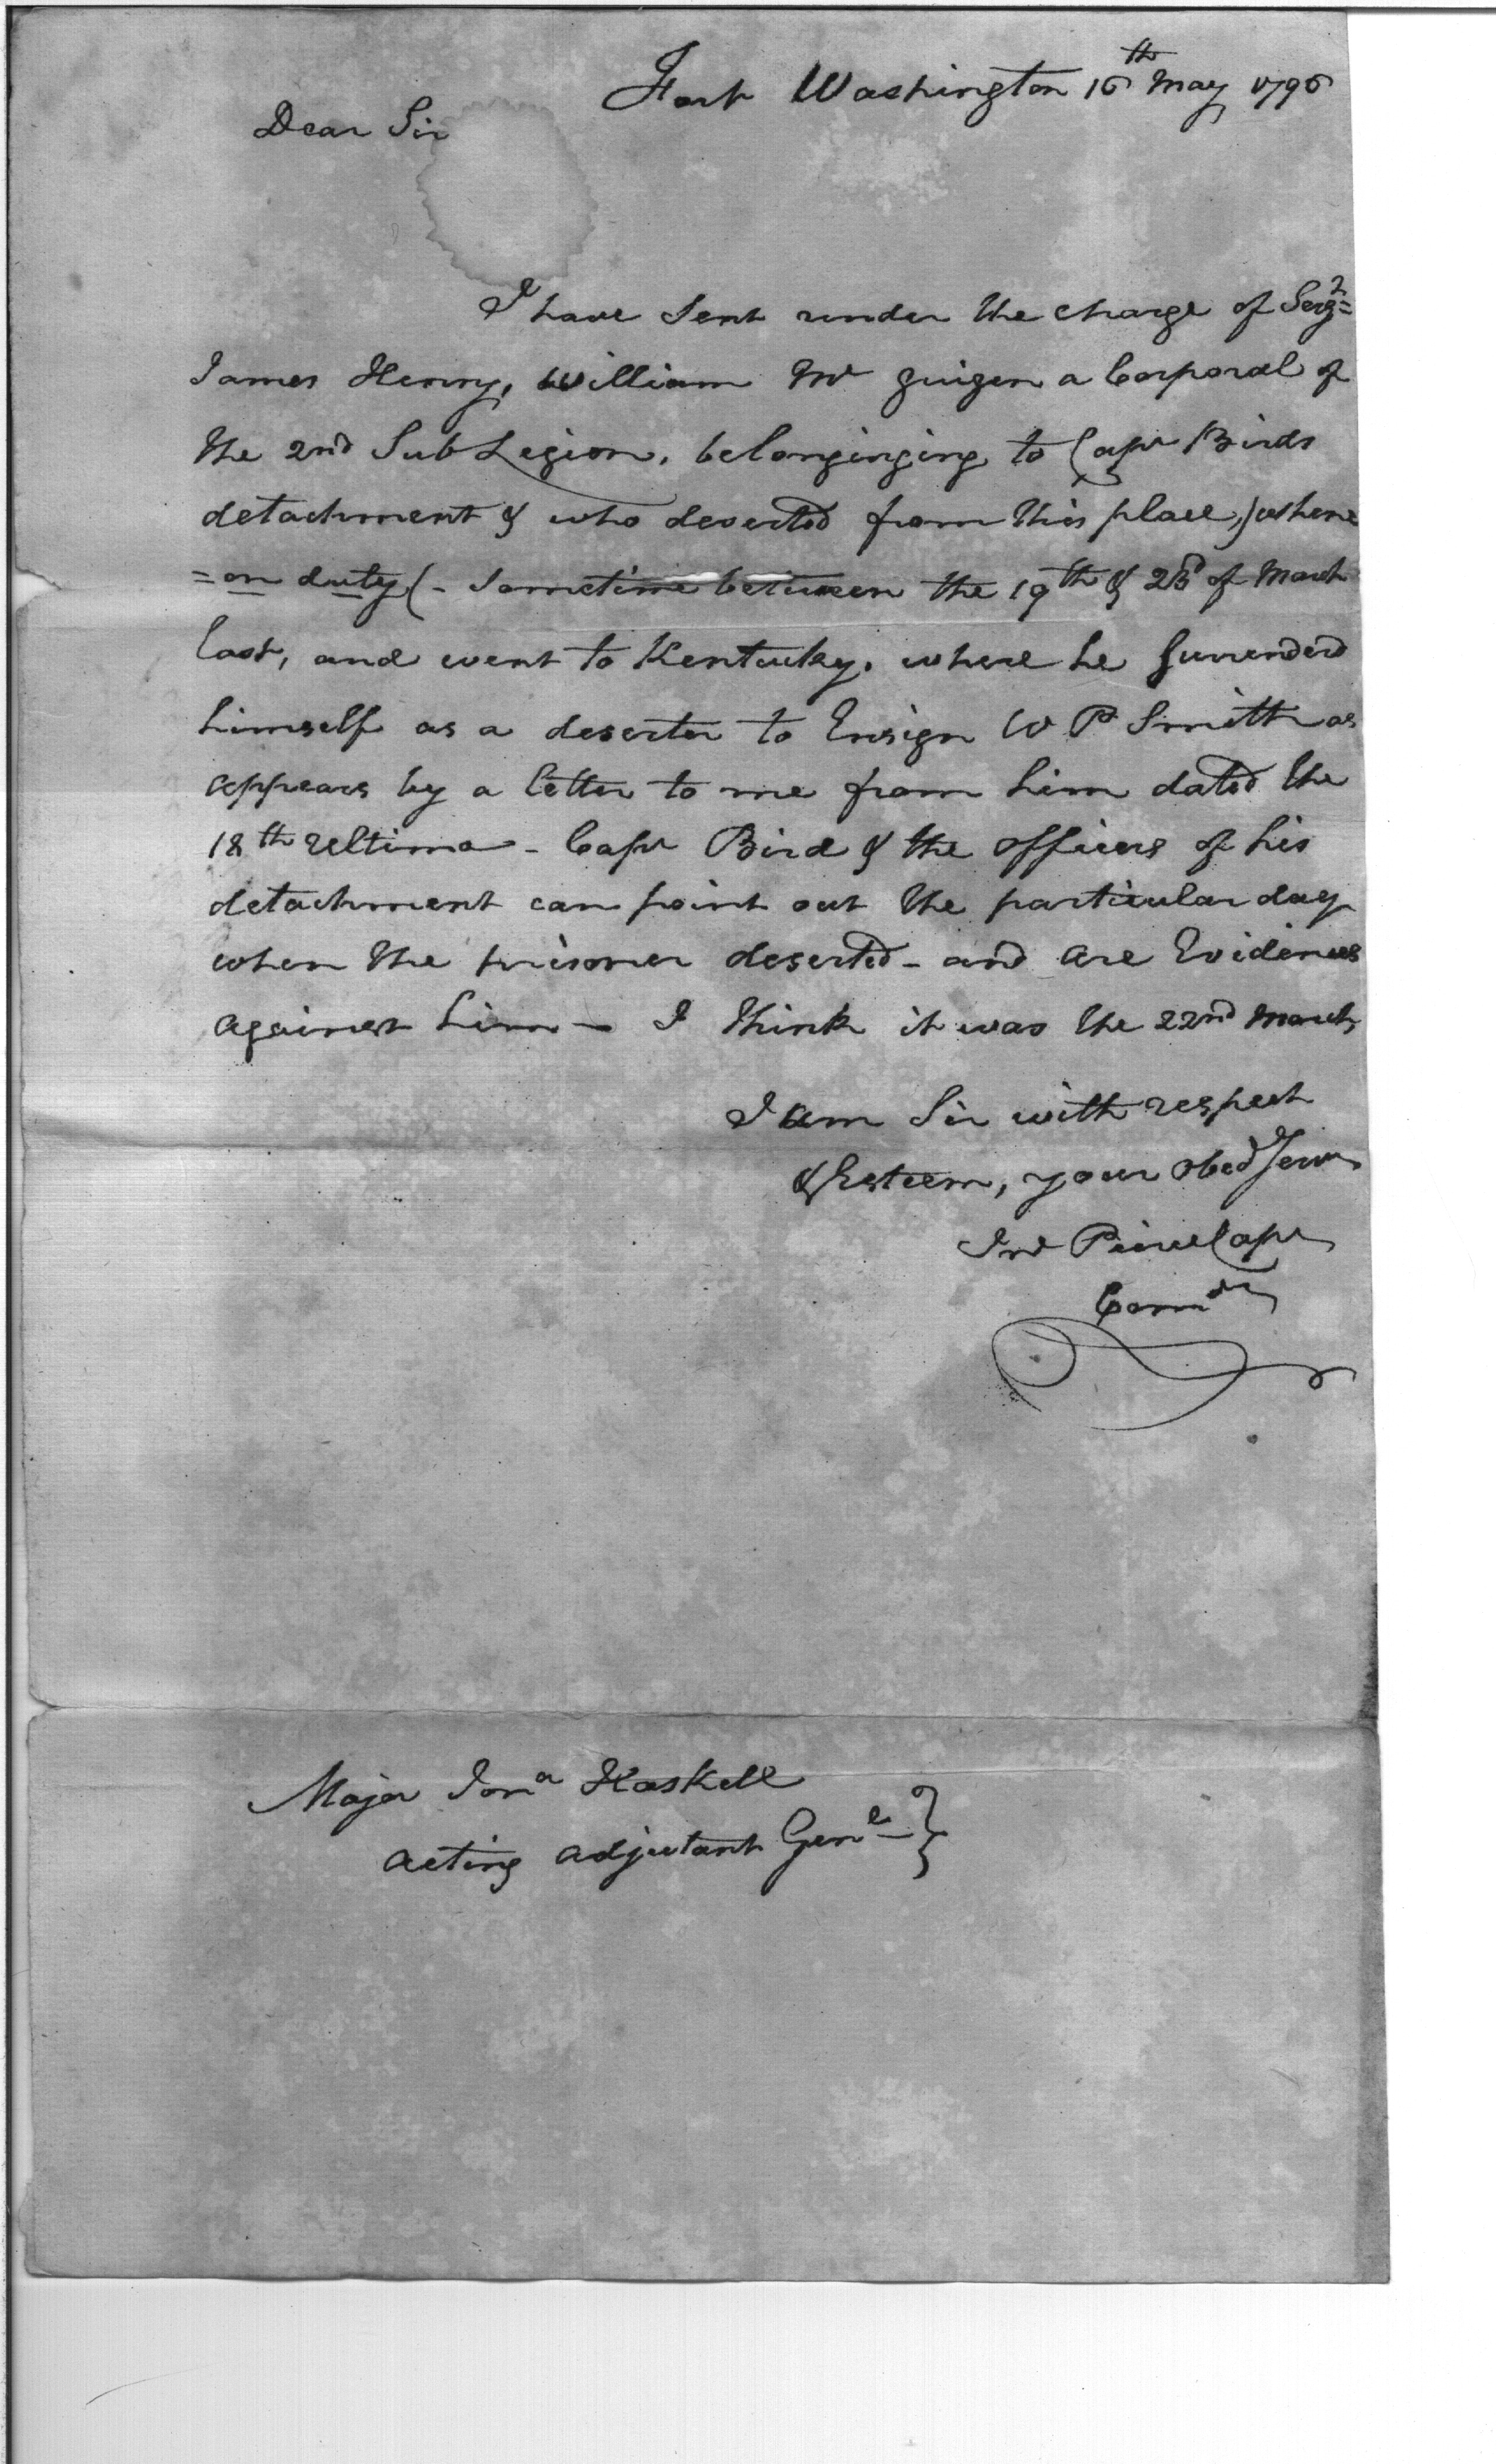 Fort Washington 16th May 1796
Dear Sir
I have Sent under the charge of Sergt=
James Henry, William Mc a Corporal of
the 2nd Sub Legion, belonginging to Capt Birds
detachment & who deserted from this place,)when
=on duty(- Sometime between the 19th & 23d of March
last, and went to Kentucky. where he Surrenderd
himself as a deserter to Ensign W P Smith as
appears by a letter to me from him dated the
18th Ultimo - Capt Bird & the officers of his
detachment can point out the particular day
when the prisoner deserted - and are Evidences
against him - I think it was the 22nd March
I am Sir with respect
& Esteem, your obed Servt
Jno Pierce Capt
Comdt
Major Jona Haskell
acting adjutant Genl - }